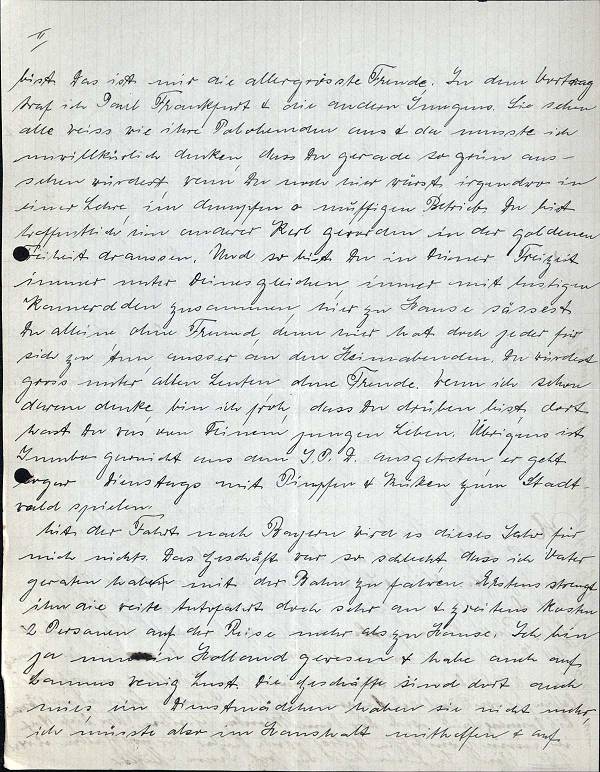 II
bist. Das ist mir die allergrösste Freude. In dem Vortrag
traf ich Paul Frankfurt & die andern Jungens. Sie sehen
alle weiss wie ihre Polohemden aus & da musste ich
unwillkürlich denken, dass Du gerade so grün aus-
sehen würdest, wenn Du noch hier wärst irgendwo in
einer Lehre, im dumpfen & muffigen Betrieb. Du bist
hoffentlich ein anderer Kerl geworden in der goldenen
Freiheit draussen. Und so bist Du in Deiner Freizeit
immer unter Deinesgleichen immer mit lustigen
Kamerdden zusammen hier zu Hause sässest
Du alleine ohne Freund, denn hier hat doch jeder für
sich zu tun ausser an den Heimabenden. Du würdest
gross unter alten Leuten ohne Freude. Wenn ich schon
daran denke, bin ich froh, dass Du drüben bist, dort
hast Du was von Deinem jungen Leben. Übrigens ist
garnicht aus dem J.P.D. ausgetreten er geht
sogar Dienstags mit Pimpfen & Küken zum Stadt-
wald spielen.
Mit der Fahrt nach Bayern wird es dieses Jahr für
mich nichts. Das Geschäft war so schlecht dass ich Vater
geraten habe mit der Bahn zu fahren. Erstens strengt
ihn die weite Autofahrt doch sehr an & zweitens kosten
2 Personen auf der Reise mehr als zu Hause. Ich bin
ja nun in Holland gewesen & habe auch auf
wenig Lust. Die Geschäfte sind dort auch
mies, ein Dienstmädchen haben sie nicht mehr,
ich müsste also im Haushalt mithelfen & auf